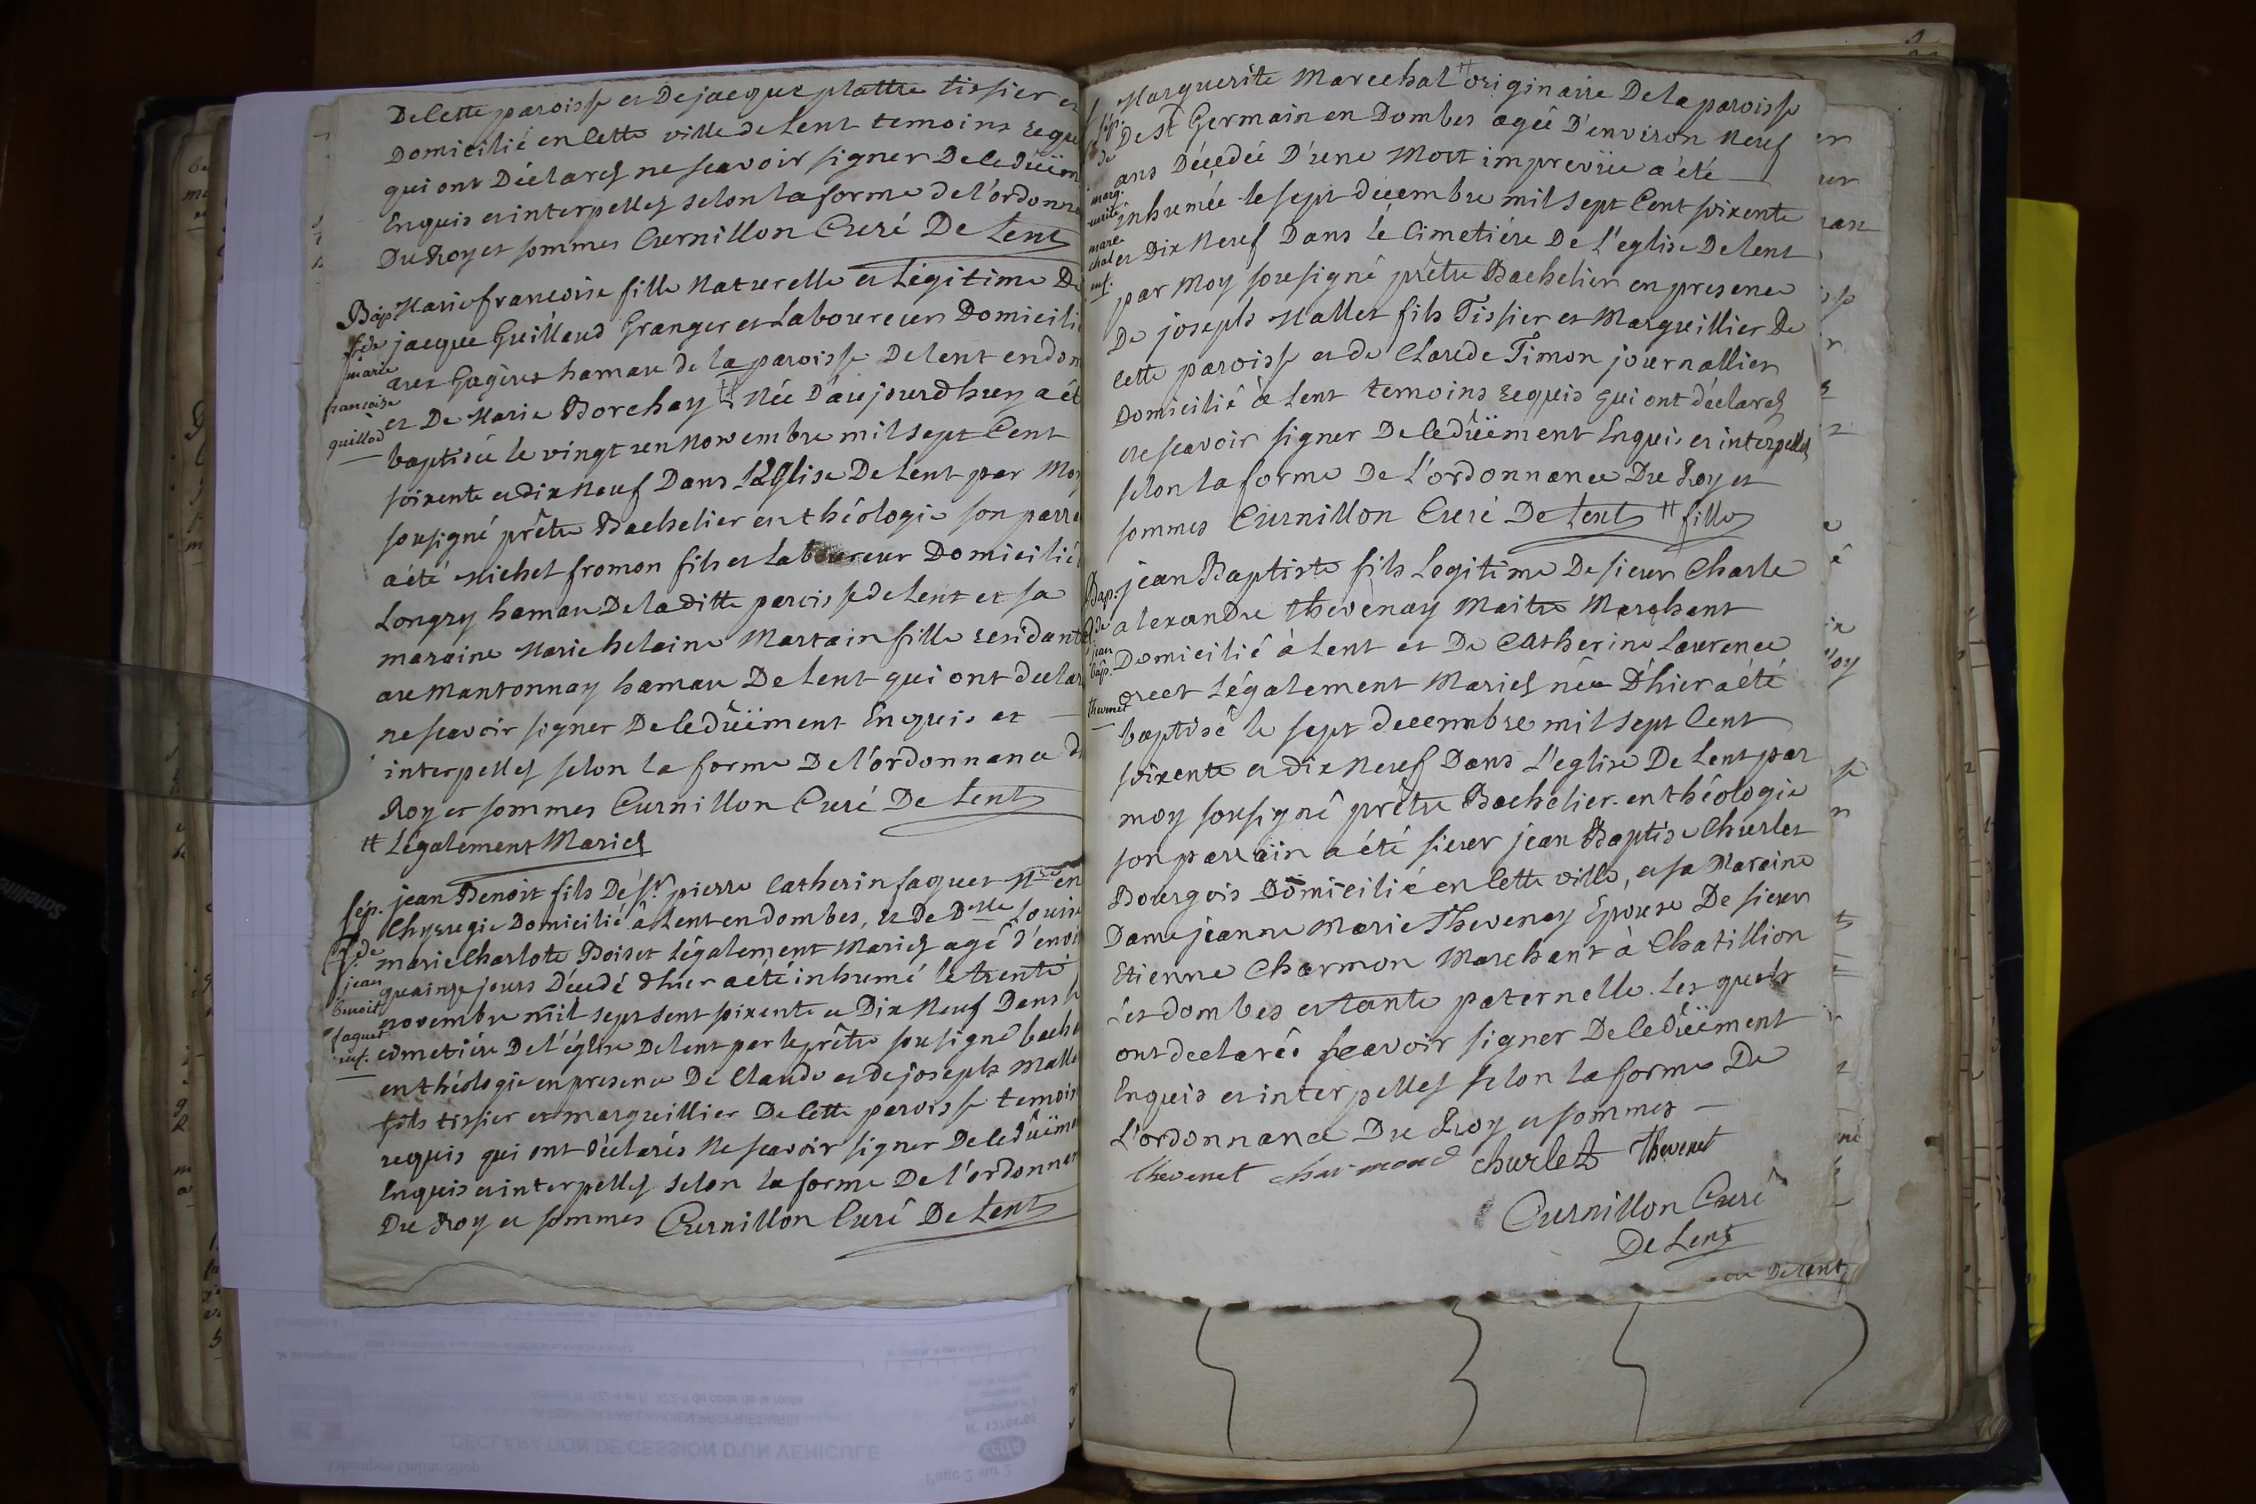 De Cette paroisse et De jacque plattre tissier et
Domicilié en Cette ville de Lent temoins requ
qui ont Déclarés ne scavoir signer De Ce Düem
Enquis et interpellés selon la forme de l'ordonn
Du Roy et sommes Curnillon Curé De Lent
Bap. Marie francoise fille Naturelle et Légitime De
f. de jacque Guillaud Granger et Laboureur Domicilié
marie aux Gagères hamau de la paroisse De lent en dom
francoise et De Marie Borchay # Née D'aujourdhuy a ét
guillod baptisée le vingt un Novembre mil sept Cent
soixente et dix Neuf Dans L'Eglise De Lent par Moy
sousigné prêtre Bachelier en théologie son parra
a été Michel fromon fils et Laboureur Domicilié
Longry hamau De la ditte paroisse de Lent et sa
maraine Marie helaine Martain fille residante
au Mantonnay hamau De Lent qui ont declar
ne scavoir signer De Ce Düement Enquis et
interpellés selon la forme De l'ordonnance d
Roy et sommes Curnillon Curé De Lent
# Légalement Mariés
sép. jean Benoit fils De sr. pierre Catherin faguet Mre en
Chyrurgie Domicilié à Lent en dombes, et De Delle Louise
de marie Charlote Boiset Légalement Mariés agé d'envi
jean quainze jours Décedé d'hier a été inhumé le trente
benoit novembre mil sept sent soixente et Dix Neuf Dans l
faguet cimetiére De l'église De lent par le prêtre sousigné bach
enf. en théologie en presence De Claude et de joseph Malle
fils tissier et marguillier De Cette paroisse temoin
requis qui ont Déclarés Ne scavoir signer De Ce Düeme
Enquis et interpellés selon la forme De l'ordonnan
Du Roy et sommes Curnillon Curé De Lent
Marguerite Marechal # originaire De la paroisse
sép. De St Germain en Dombes agée D'environ Neuf
de ans Décedée D'une Mort imprevüe a été
marg- inhumée le sept décembre mil sept Cent soixente
uerite
mare et Dix Neuf Dans le Cimetiére De L'eglise De lent
chal
enf. par Moy sousigné prêtre Bachelier en presence
De joseph Mallet fils Tissier et Marguillier De
Cette paroisse et de Claude Timon journallier
Domicilié à Lent temoins requis qui ont déclarés
ne scavoir signer De Ce Düement Enquis et interpellés
selon la forme De L'ordonnance Du Roy et
sommes Curnillon Curé De Lent # fille
Bap. jean Baptiste fils Legitime De sieur Charle
de alexandre thévenay Maitre Marchent
jean Domicilié à Lent et De Catherine Laurence
bap.
thevenet Légalement Mariés née D'hier a été
baptisé le sept decembre mil sept Cent
soixente et dix Neuf Dans L'eglise De Lent par
moy sousigné prêtre Bachelier en théologie
son parrain a été sieur jean Baptise Churlet
Bourgois Domicilié en Cette ville, et sa Maraine
Dame jeanne Marie Thevenay Epouse De sieur
Etienne Charmon Marchant à Chatillion
Les dombes et tante paternelle. Les quels
ont declarés scavoir signer De Ce Düement
Enquis et interpellés selon la forme De
L'ordonnance Du Roy et sommes
thevenet charmond churlet Thevenet
Curnillon Curé
De Lent
De Lent